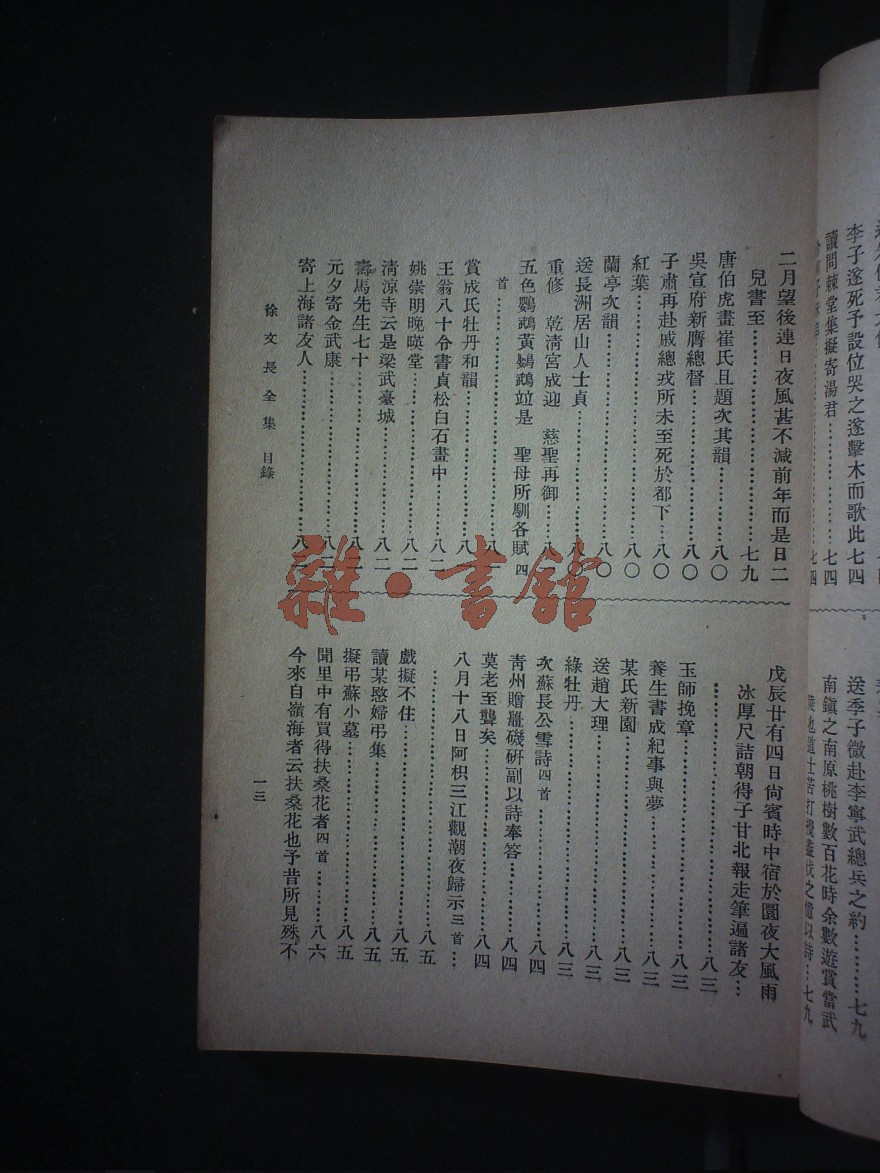 李子遂死予設位哭之遂擊木而歌此七四
讀問棘堂集擬寄湯君……七四
送季子微赴李寧武總兵之約……七九
南鎮之南原桃樹數百花時余數遊賞當武
二月望後連日夜風甚不減前年而是日二
兒書至……七九
唐伯虎畫崔氏且題次其韻……八〇
吳宣府新膺總督……八〇
子肅再赴戚總戎所未至死於都下……八〇
紅葉……八〇
蘭亭次韻……八〇
送長洲居山人士貞……八〇
重修 乾淸宮成迎 慈聖再御……八
五色鸚鵡黃鸚鵡竝是 聖母所馴各賦四
首……八
賞成氏牡丹和韻……八
王翁八十令書貞松白石畫中……八二
姚崇明晚暎堂……八二
淸涼寺云是梁武臺城……八二
壽馬先生七十……八二
元夕寄金武康……八
寄上海諸友人……八
戊辰廿有四日尙賓時中宿於圜夜大風雨
冰厚尺詰朝得子甘北報走筆遍諸友…
……八三
玉師挽章……八三
養生書成紀事與夢……八三
某氏新園……八三
送趙大理……八三
綠牡丹……八三
次蘇長公雪詩四首……八四
靑州贈羅磯硏副以詩奉答……八四
莫老至聾矣……八四
八月十八日阿枳三江觀潮夜歸示三首…
……八五
戲擬不住……八五
讀某愍婦弔集……八五
擬弔蘇小墓……八五
聞里中有買得扶桑花者四首……八六
今來自嶺海者云扶桑花也予昔所見殊不
徐文長全集 目錄
一三
雜·書館